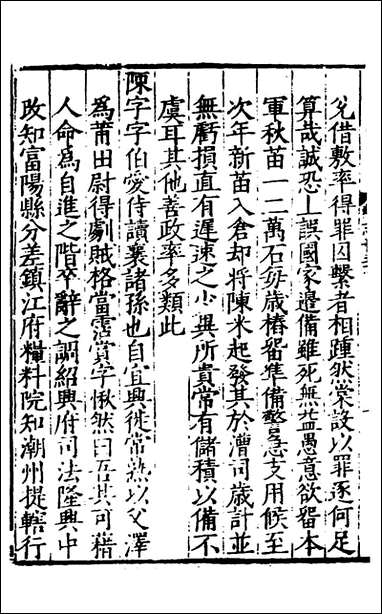 兊借數率得罪囚繫者相踵然棠設以罪逐何足
算哉誠恐上誤國家邉備雖死無益愚意欲畱本
軍秋苗一二萬石每歲樁畱準備警急支用候至
次年新苗入倉却將陳米起發其於漕司歲計並
無虧損直有遲速之少異所貴常有儲積以備不
虞耳其他善政率多類此
陳字字伯愛侍讀襄諸孫也自宜興徙常熟以父澤
為莆田尉得劇賊格當霑賞字愀然曰吾其可藉
人命為自進之階卒辭之調紹興府司法隆興中
改知富陽縣分差鎮江府糧料院知潮州提轄行